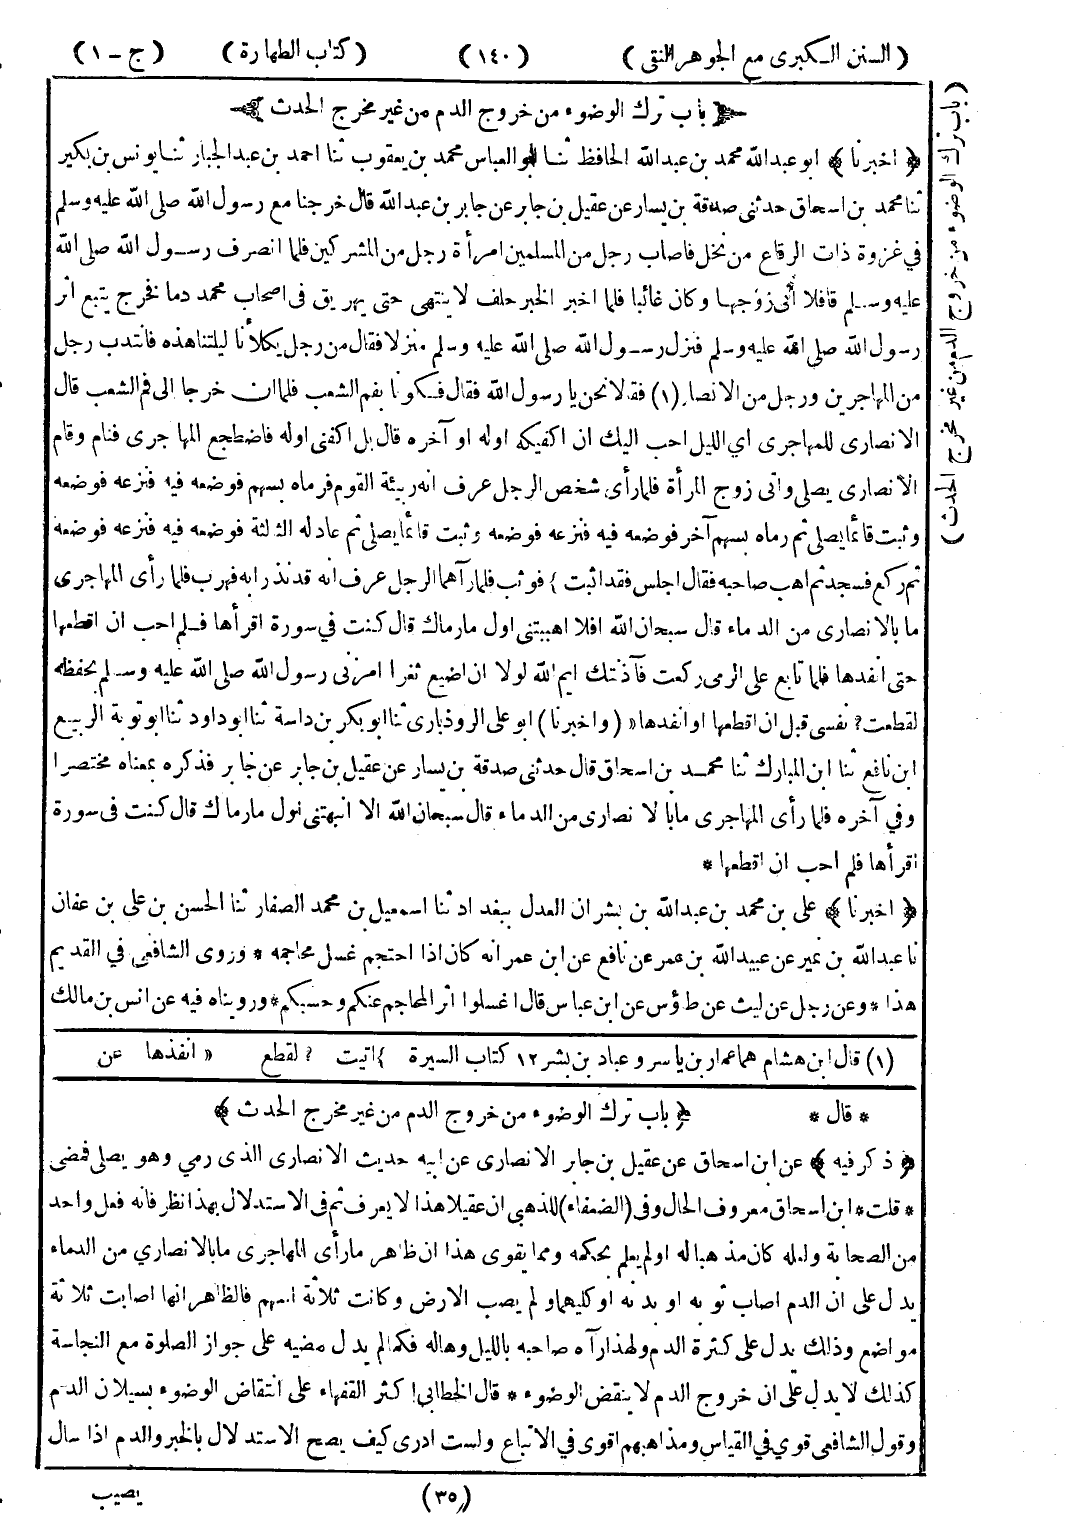 (السنن الكبرى مع الجوهر النقى) (١٤٠) (كتاب الطهارة) (ج - ١)
(باب ترك الوضوء من خروج الدم من غير مخرج الحدث)
باب ترك الوضوء من خروج الدم من غير مخرج الحدث
﴿ اخبرنا ﴾ ابو عبدالله محمد بن عبدالله الحافظ ثنا ابو العباس محمد بن يعقوب ثنا احمد بن عبدالجبار ثنا يونس بن بكير
ثنا محمد بن اسحاق حدثنى صدقة بن يسار عن عقيل بن جابر عن جابر بن عبدالله قال خرجنا مع رسول الله صلى الله عليه وسلم
في غزوة ذات الرقاع من نخل فاصاب رجل من المسلمين امرأة رجل من المشركين فلما انصرف رسول الله صلى الله
عليه وسلم قافلا أتى زوجها وكان غائبا فلما اخبر الخبر حلف لا ينتهى حتى يهريق فى اصحاب محمد دما فخرج يتبع اثر
رسول الله صلى الله عليه وسلم فنزل رسول الله صلى الله عليه وسلم منزلا فقال من رجل يكلأنا ليلتنا هذه فانتدب رجل
من المهاجرين ورجل من الانصار (١) فقالا نحن يا رسول الله فقال فكونا بفم الشعب فلما ان خرجا الى فم الشعب قال
الانصارى للمهاجرى اي الليل احب اليك ان اكفيكه اوله او آخره قال بل اكفنى اوله فاضطجع المهاجرى فنام وقام
الانصارى يصلى واتى زوج المرأة فلما رأى شخص الرجل عرف انه ربيئة القوم فرماه بسهم فوضعه فيه فنزعه فوضعه
وثبت قائما يصلى ثم رماه بسهم آخر فوضعه فيه فنزعه فوضعه وثبت قائما يصلى ثم عاد له الثالثة فوضعه فيه فنزعه فوضعه
ثم ركع فسجد ثم اهب صاحبه فقال اجلس فقد اثبت } فوثب فلما رآهما الرجل عرف انه قد نذرا به فهرب فلما رأى المهاجرى
ما بالانصارى من الدماء قال سبحان الله افلا اهببتنى اول ما رماك قال كنت في سورة اقرأها فلم احب ان اقطعها
حتى انفدها فلما تابع على الرمى ركعت فآذنتك ايم الله لولا ان اضيع ثغرا امرنى رسول الله صلى الله عليه وسلم بحفظه
لقطعت؟ نفسى قبل ان اقطعها او انفدها« (واخبرنا) ابو على الروذبارى ثنا ابو بكر بن داسة ثنا ابو داود ثنا ابو توبة الربيع
ابن نافع ثنا ابن المبارك ثنا محمد بن اسحاق قال حدثنى صدقة بن يسار عن عقيل بن جابر عن جابر فذكره بمعناه مختصرا
وفي آخره فلما رأى المهاجرى ما بالانصارى من الدماء قال سبحان الله الا انبهتنى اول ما رماك قال كنت فى سورة
اقرأها فلم احب ان اقطعها *
﴿ اخبرنا ﴾ على بن محمد بن عبدالله بن بشران العدل ببغداد ثنا اسمعيل بن محمد الصفار ثنا الحسن بن على بن عفان
نا عبدالله بن نمير عن عبيدالله بن عمر عن نافع عن ابن عمر انه كان اذا احتجم غسل محاجمه * وروى الشافعى في القديم
هذا * وعن رجل عن ليث عن طاؤس عن ابن عباس قال اغسلوا اثر المحاجم عنكم وحسبكم * وروينا فيه عن انس بن مالك
(١) قال ابن هشام هما عمار بن ياسر وعباد بن بشر ١٢ كتاب السيرة } اتيت ؟ لقطع « انفذها عن
* قال * ﴿ باب ترك الوضوء من خروج الدم من غير مخرج الحدث ﴾
﴿ ذكر فيه ﴾ عن ابن اسحاق عن عقيل بن جابر الانصارى عن ابيه حديث الانصارى الذى رمي وهو يصلى فمضى
* قلت * ابن اسحاق معروف الحال وفى (الضعفاء) للذهبى ان عقيلا هذا لا يعرف ثم فى الاستدلال بهذا نظر فأنه فعل واحد
من الصحابة ولعله كان مذهبا له او لم يعلم بحكمه ومما يقوى هذا ان ظاهر ما رأى المهاجرى ما بالانصاري من الدماء
يدل على ان الدم اصاب ثوبه او بدنه او كليهما ولم يصب الارض وكانت ثلاثة اسهم فالظاهر انها اصابت ثلاثة
مواضع وذلك يدل على كثرة الدم ولهذا رآه صاحبه بالليل وهاله فكما لم يدل مضيه على جواز الصلوة مع النجاسة
كذلك لا يدل على ان خروج الدم لا ينقض الوضوء * قال الخطابى اكثر الفقهاء على انتقاض الوضوء بسيلان الدم
وقول الشافعى قوي في القياس ومذاهبهم اقوى في الاتباع ولست ادرى كيف يصح الاستدلال بالخبر والدم اذا سال
(٣٥) يصيب